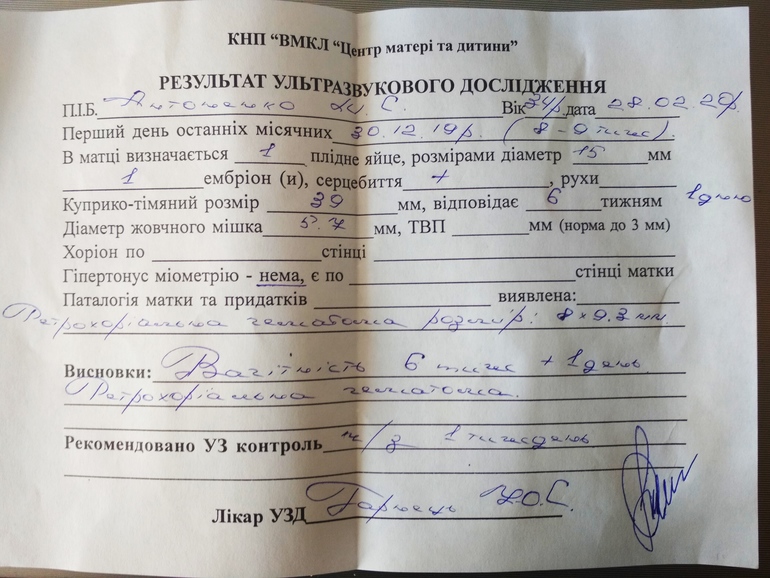 КНП “ВМКЛ “Центр матері та дитини”
РЕЗУЛЬТАТ УЛЬТРАЗВУКОВОГО ДОСЛІДЖЕННЯ
П.І.Б. С. Вік 34р. дата 28.02.20р.
Перший день останніх місячних 30.12.19р. (8-9 тиж).
В матці визначається 1 плідне яйце, розмірами діаметр 15 мм
1 ембріон (и), серцебиття + , рухи
Куприко-тімяний розмір 39 мм, відповідає 6 тижням 1 день
Діаметр жовчного мішка 5.7 мм, ТВП мм (норма до 3 мм)
Хоріон по стінці
Гіпертонус міометрію - нема, є по стінці матки
Паталогія матки та придатків виявлена:
Ретрохоріальна гематома розмір: 8 х 9.3 мм
Висновки: Вагітність 6 тиж + 1 день.
Ретрохоріальна гематома.
Рекомендовано УЗ контроль ч/з 1 тиждень
Лікар УЗД Ю.С.